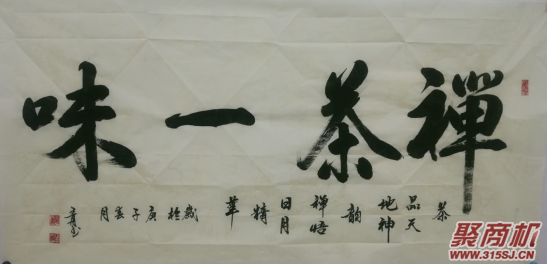 禪茶一味
茶品天地神韵禪悟日月精華
歲於庚子月
聚商机
www.315SJH.COM